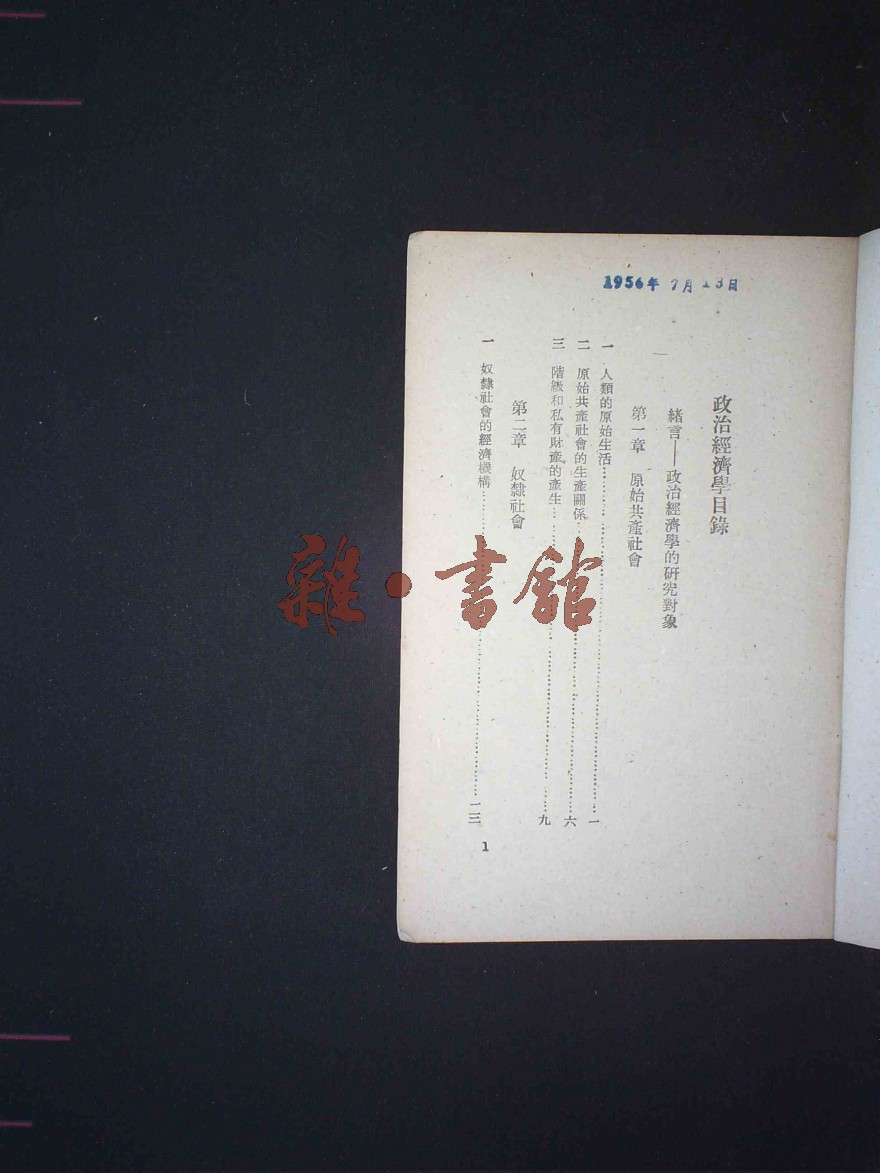 1956年7月13日
政治經濟學目錄
緒言——政治經濟學的研究對象
第一章 原始共產社會
一 人類的原始生活……一
二 原始共產社會的生產關係……六
三 階級和私有財產的產生……九
第二章 奴隸社會
一 奴隸社會的經濟機構……一三
1
雜·書館